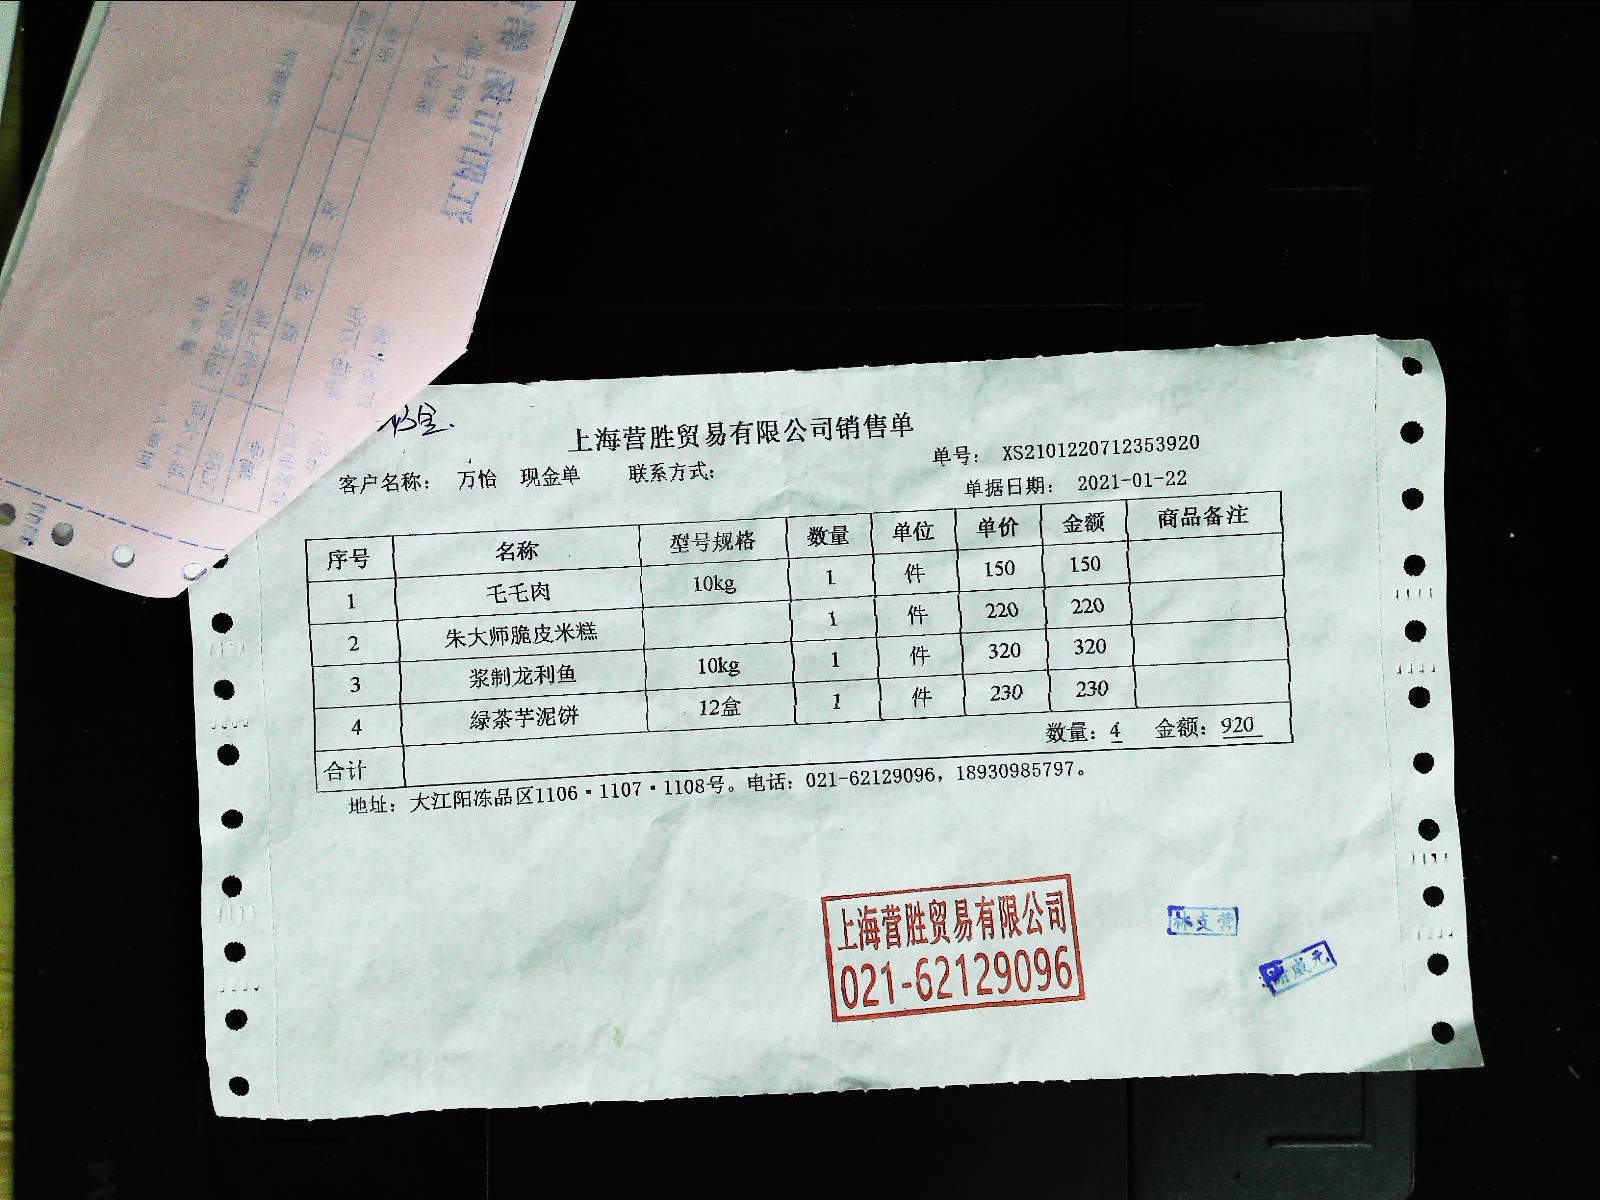 上海营胜贸易有限公司销售单
单号： XS2101220712353920
客户名称： 万怡 现金单 联系方式：
单据日期： 2021-01-22
序号 名称 型号规格 数量 单位 单价 金额 商品备注
1 毛毛肉 10kg 1 件 150 150
2 朱大师脆皮米糕 1 件 220 220
3 浆制龙利鱼 10kg 1 件 320 320
4 绿茶芋泥饼 12盒 1 件 230 230
合计 数量：4 金额：920
地址：大江阳冻品区1106·1107·1108号。电话：021-62129096，18930985797。
上海营胜贸易有限公司
021-62129096
林支营